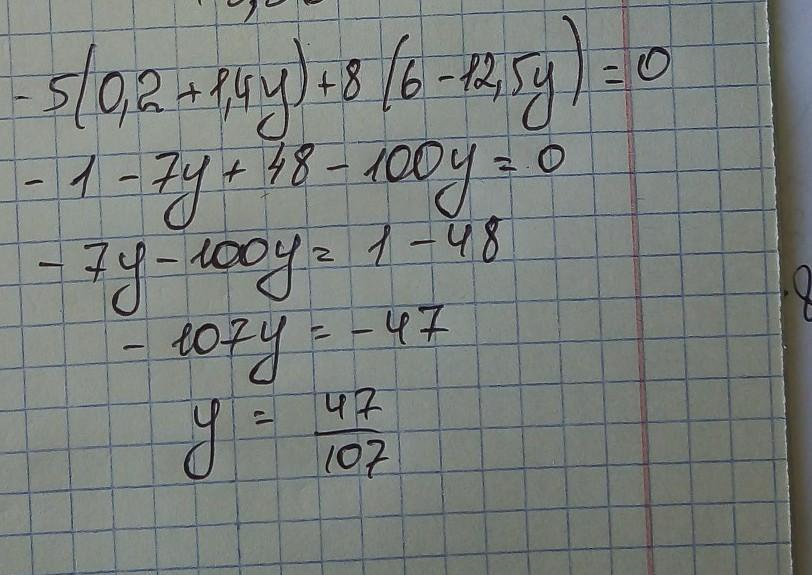 - 5(0,2 + 1,4y) + 8 (6 - 12,5y) = 0
- 1 - 7y + 48 - 100y = 0
- 7y - 100y = 1 - 48
- 107y = - 47
y = 47/107